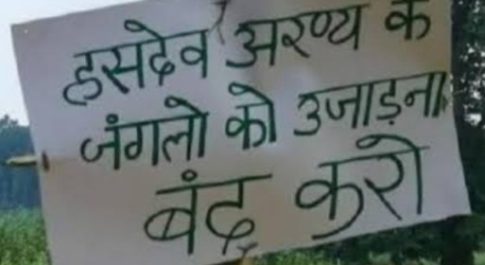 हसदेव अरण्य क
जंगलो को उजाड़ना
बंद करो